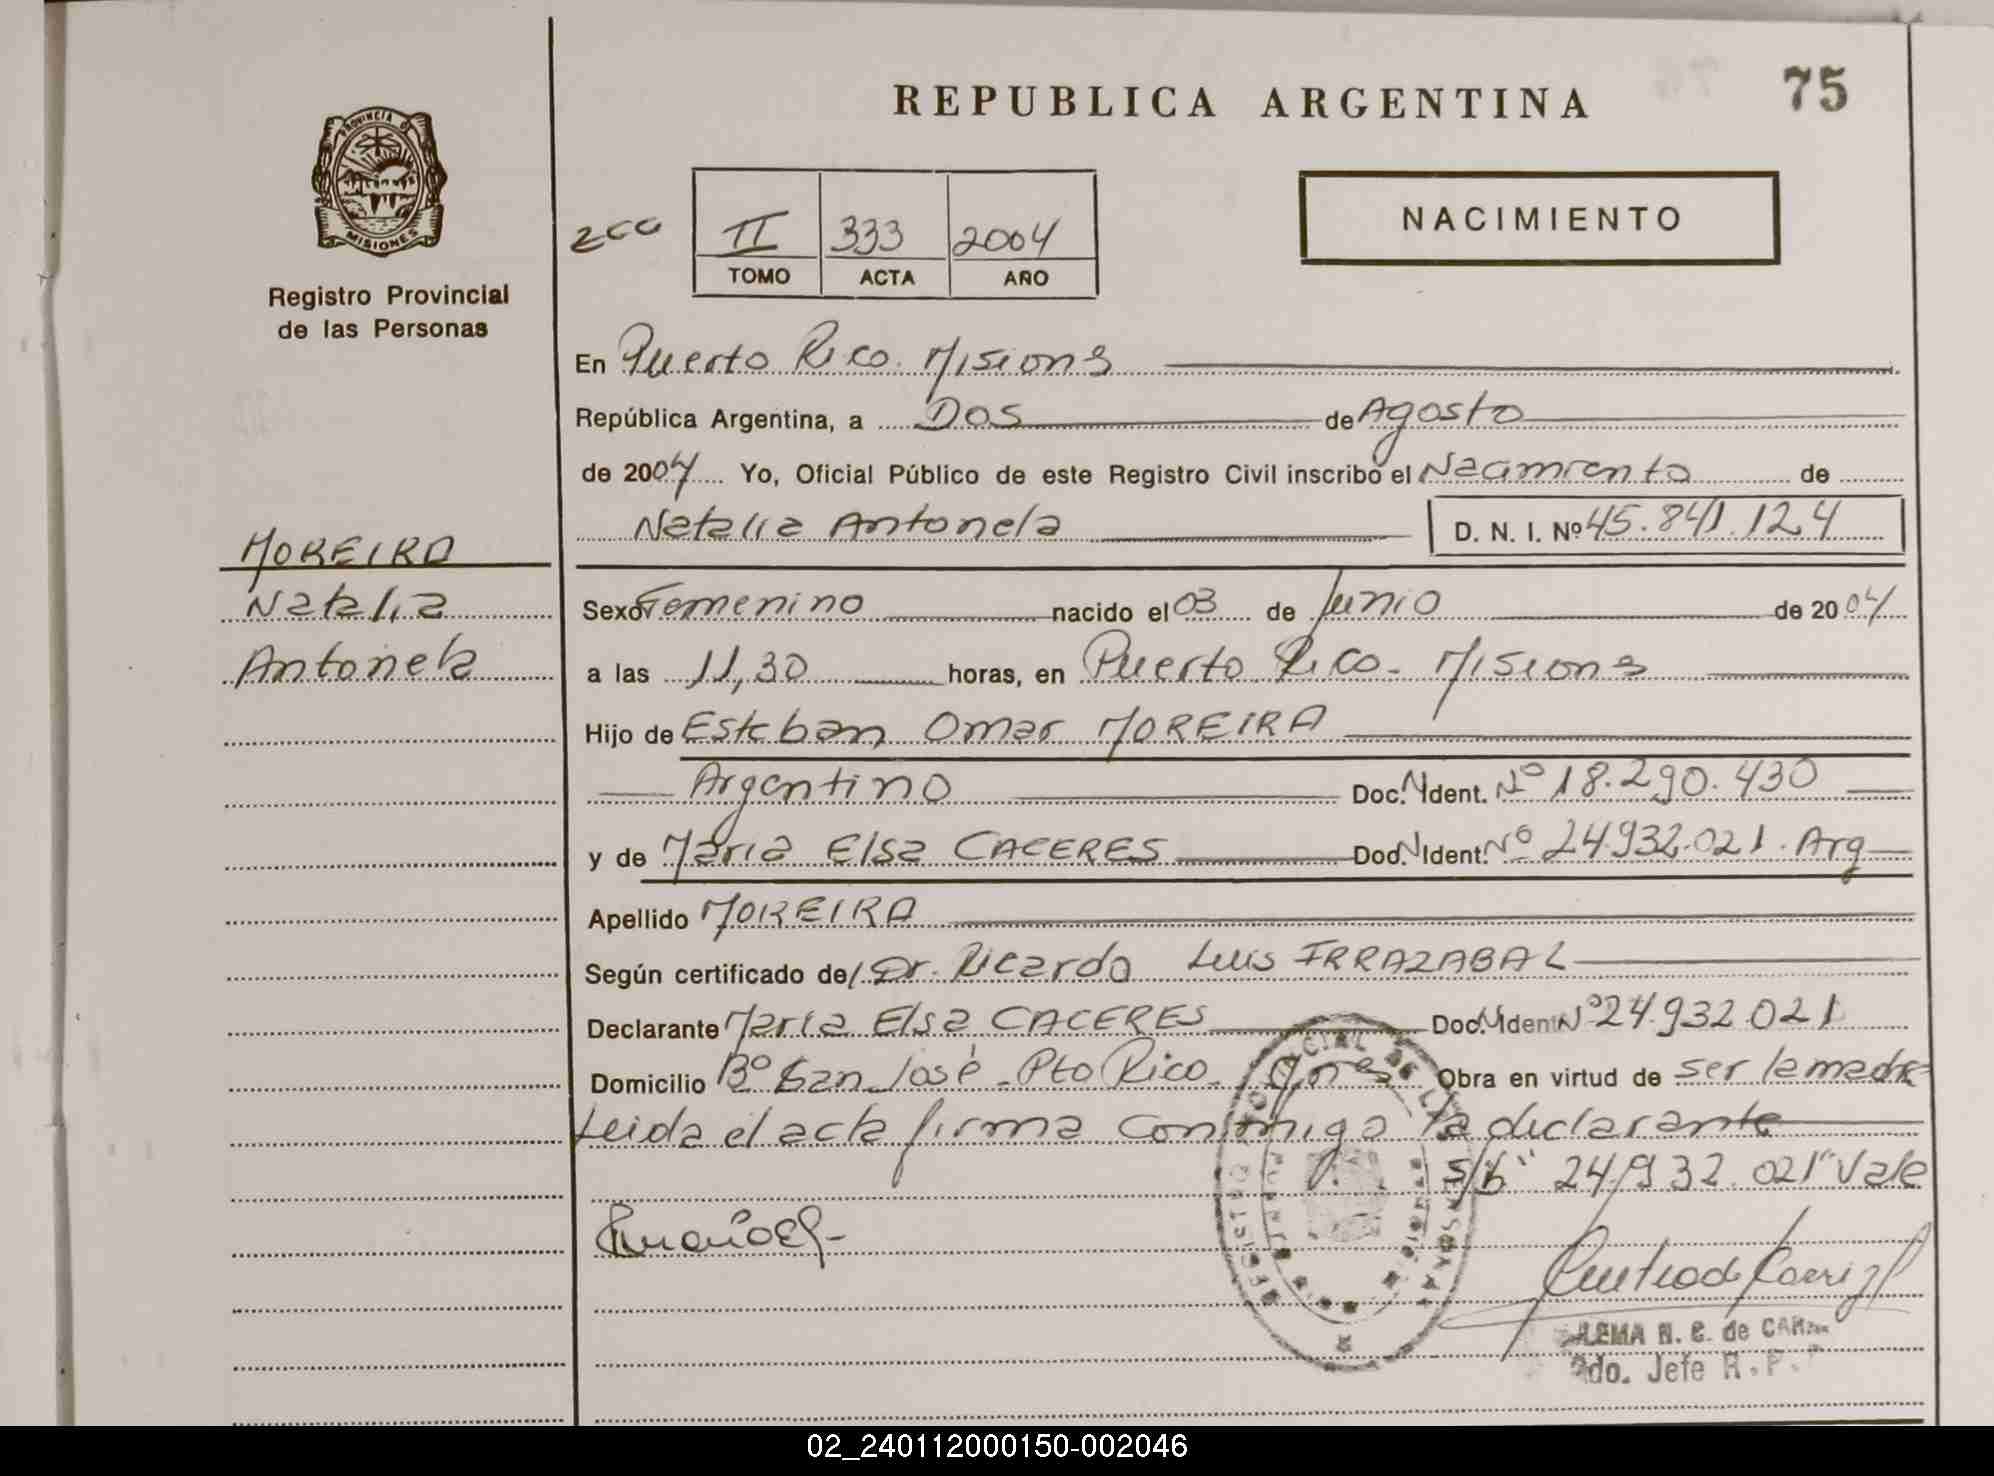 REPUBLICA ARGENTINA
75
PROVINCIA DE
MISIONES
Registro Provincial
de las Personas
NACIMIENTO
II 333 2004
TOMO ACTA AÑO
En Puerto Rico. Misions
República Argentina, a Dos de Agosto
de 2004 Yo, Oficial Público de este Registro Civil inscribo el Nacimiento de
Natalia Antonela D. N. I. Nº 45.841.124
MOREIRA
Natalia
Antonela
Sexo Femenino nacido el 03 de Junio de 2004
a las 11,30 horas, en Puerto Rico - Misions
Hijo de Esteban Omar MOREIRA
Argentino Doc. Ident. Nº 18.290.430
y de Maria Elsa CACERES Doc. Ident. Nº 24.932.021. Arg
Apellido MOREIRA
Según certificado de/ Dr. Ricardo Luis IRRAZABAL
Declarante Maria Elsa CACERES Doc. Ident Nº 24.932.021
Domicilio Bº San José - Pto Rico - Obra en virtud de ser la madre
Leida el acta firma conmigo la declarante
S/b "24.932.021" Vale
N. C. de
2do. Jefe R. P.
02_240112000150-002046